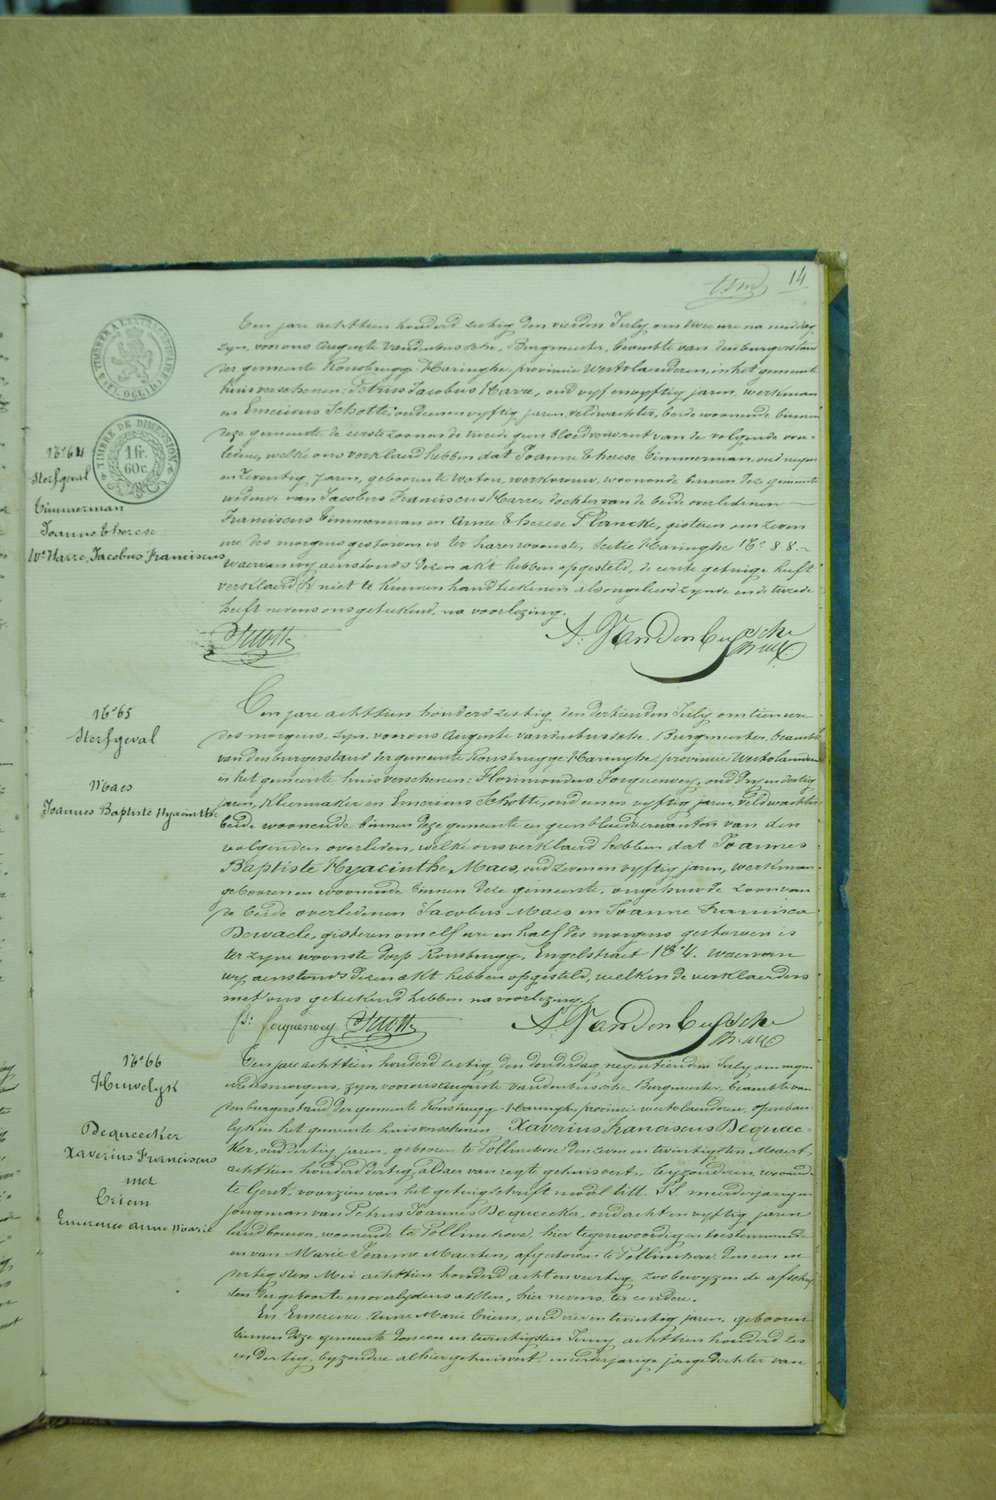 14
TIMBRE DE DIMENSION
1 fr.
60c.
N° 64
Sterfgeval
Timmerman
Joanna Therese
We Harre, Jacobus Franciscus
Ten jare achttien honderd zestig den vierden July, om twee ure na middag
zyn, voor ons Auguste Vandenbussche, Burgmeester, beambte van den burgerstand
der gemeente Rousbrugge Haringhe, provincie Westvlaanderen, in het gemeente
huis verschenen: Petrus Jacobus Harre, oud vyf en vyftig jaren, werkman
en Emerieus Schotte, oud een en vyftig jaren, veldwachter, beide woonende binnen
deze gemeente de eerste zoon en de tweede geen bloedverwant van de volgende over-
ledene, welke ons verklaerd hebben dat Joanna Therese Timmerman, oud negen
en zeventig jaren, geboren te Watou, werkvrouw, woonende binnen deze gemeente
weduwe van Jacobus Franciscus Harre, dochter van de beide overledenen
Franciscus Timmerman en Anne Therese Plancke, gisteren om zeven
ure des morgens gestorven is ter harer woonste, Sectie Haringhe N° 88.
Waervan wy aenstonds dezen akt hebben opgesteld, de eerste getuige heeft
verklaerd niet te kunnen handteekenen als ongeleerd zynde en de tweede
heeft nevens ons geteekend, na voorlezing.
A. Vandenbussche
N° 65
Sterfgeval
Maes
Joannes Baptiste Hyacinthe
Ten jare achttien honderd zestig den dertienden July om tien ure
des morgens, zyn, voor ons Auguste Vandenbussche, Burgmeester, beambte
van den burgerstand der gemeente Rousbrugge Haringhe, provincie Westvlaanderen
in het gemeente huis verschenen: Florimondus Jorquenoey, oud dry en dertig
jaren, kleermaker en Emerieus Schotte, oud een en vyftig jaren, veldwachter
beide woonende binnen deze gemeente en geen bloedverwanten van den
volgenden overleden, welke ons verklaerd hebben dat Joannes
Baptiste Hyacinthe Maes, oud zeven en vyftig jaren, werkman
geboren en woonende binnen deze gemeente, ongehuwde zoon van
de beide overledenen Jacobus Maes en Joanne Francisca
Dewaele, gisteren om elf ure en half des morgens gestorven is
ter zyne woonste dorp Rousbrugge, Engelstraet N° 4. Waervan
wy aenstonds dezen akt hebben opgesteld, welken de verklaerders
met ons geteekend hebben na voorlezing.
A. Vandenbussche
N° 66
Huwelyk
Dequeecker
Xaverius Franciscus
met
Criem
Emerence Anne Marie
Ten jare achttien honderd zestig den donderdag negentienden July om negen
ure des morgens, zyn, voor ons Auguste Vandenbussche Burgmeester, beambte van
den burgerstand der gemeente Rousbrugge Haringhe provincie Westvlaanderen, openbaer-
lyk in het gemeente huis verschenen Xaverius Franciscus Dequeec-
ker, oud dertig jaren, geboren te Pollinchove den zeven en twintigsten Maert
achttien honderd dertig, aldaer van regte gehuisvest, byzonderen woonende
te Gent, voorzien van het getuigschrift model litt. meerderjarigen
jongman van Petrus Joannes Dequeecker, oud acht en vyftig jaren
landbouwer, woonende te Pollinchove, hier tegenwoordig en toestemmende
en van Marie Joanne Maerten, afgestorven te Pollinchove den een en
dertigsten Mei achttien honderd acht en veertig, zoo bewyzen de afschrif-
ten der geboorte en overlydens akten, hier nevens ter eendere.
En Emerence Anne Marie Criem, oud vier en twintig jaren, geboren
binnen deze gemeente den een en twintigsten Juny achttien honderd zes
en dertig, byzondere alhier gehuisvest, meerderjarige jongedochter van